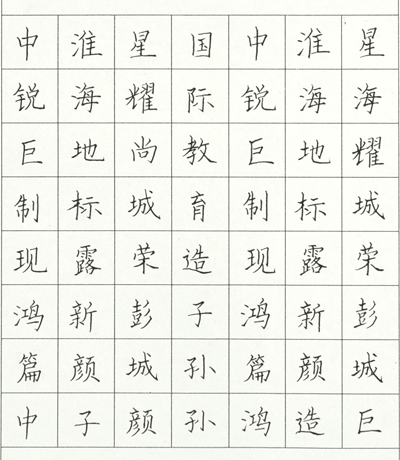 中淮星国中淮星
锐海耀际锐海海
巨地尚教巨地耀
制标城育制标城
现露荣造现露荣
鸿新彭子鸿新彭
篇颜城孙篇颜城
中子颜孙鸿造巨